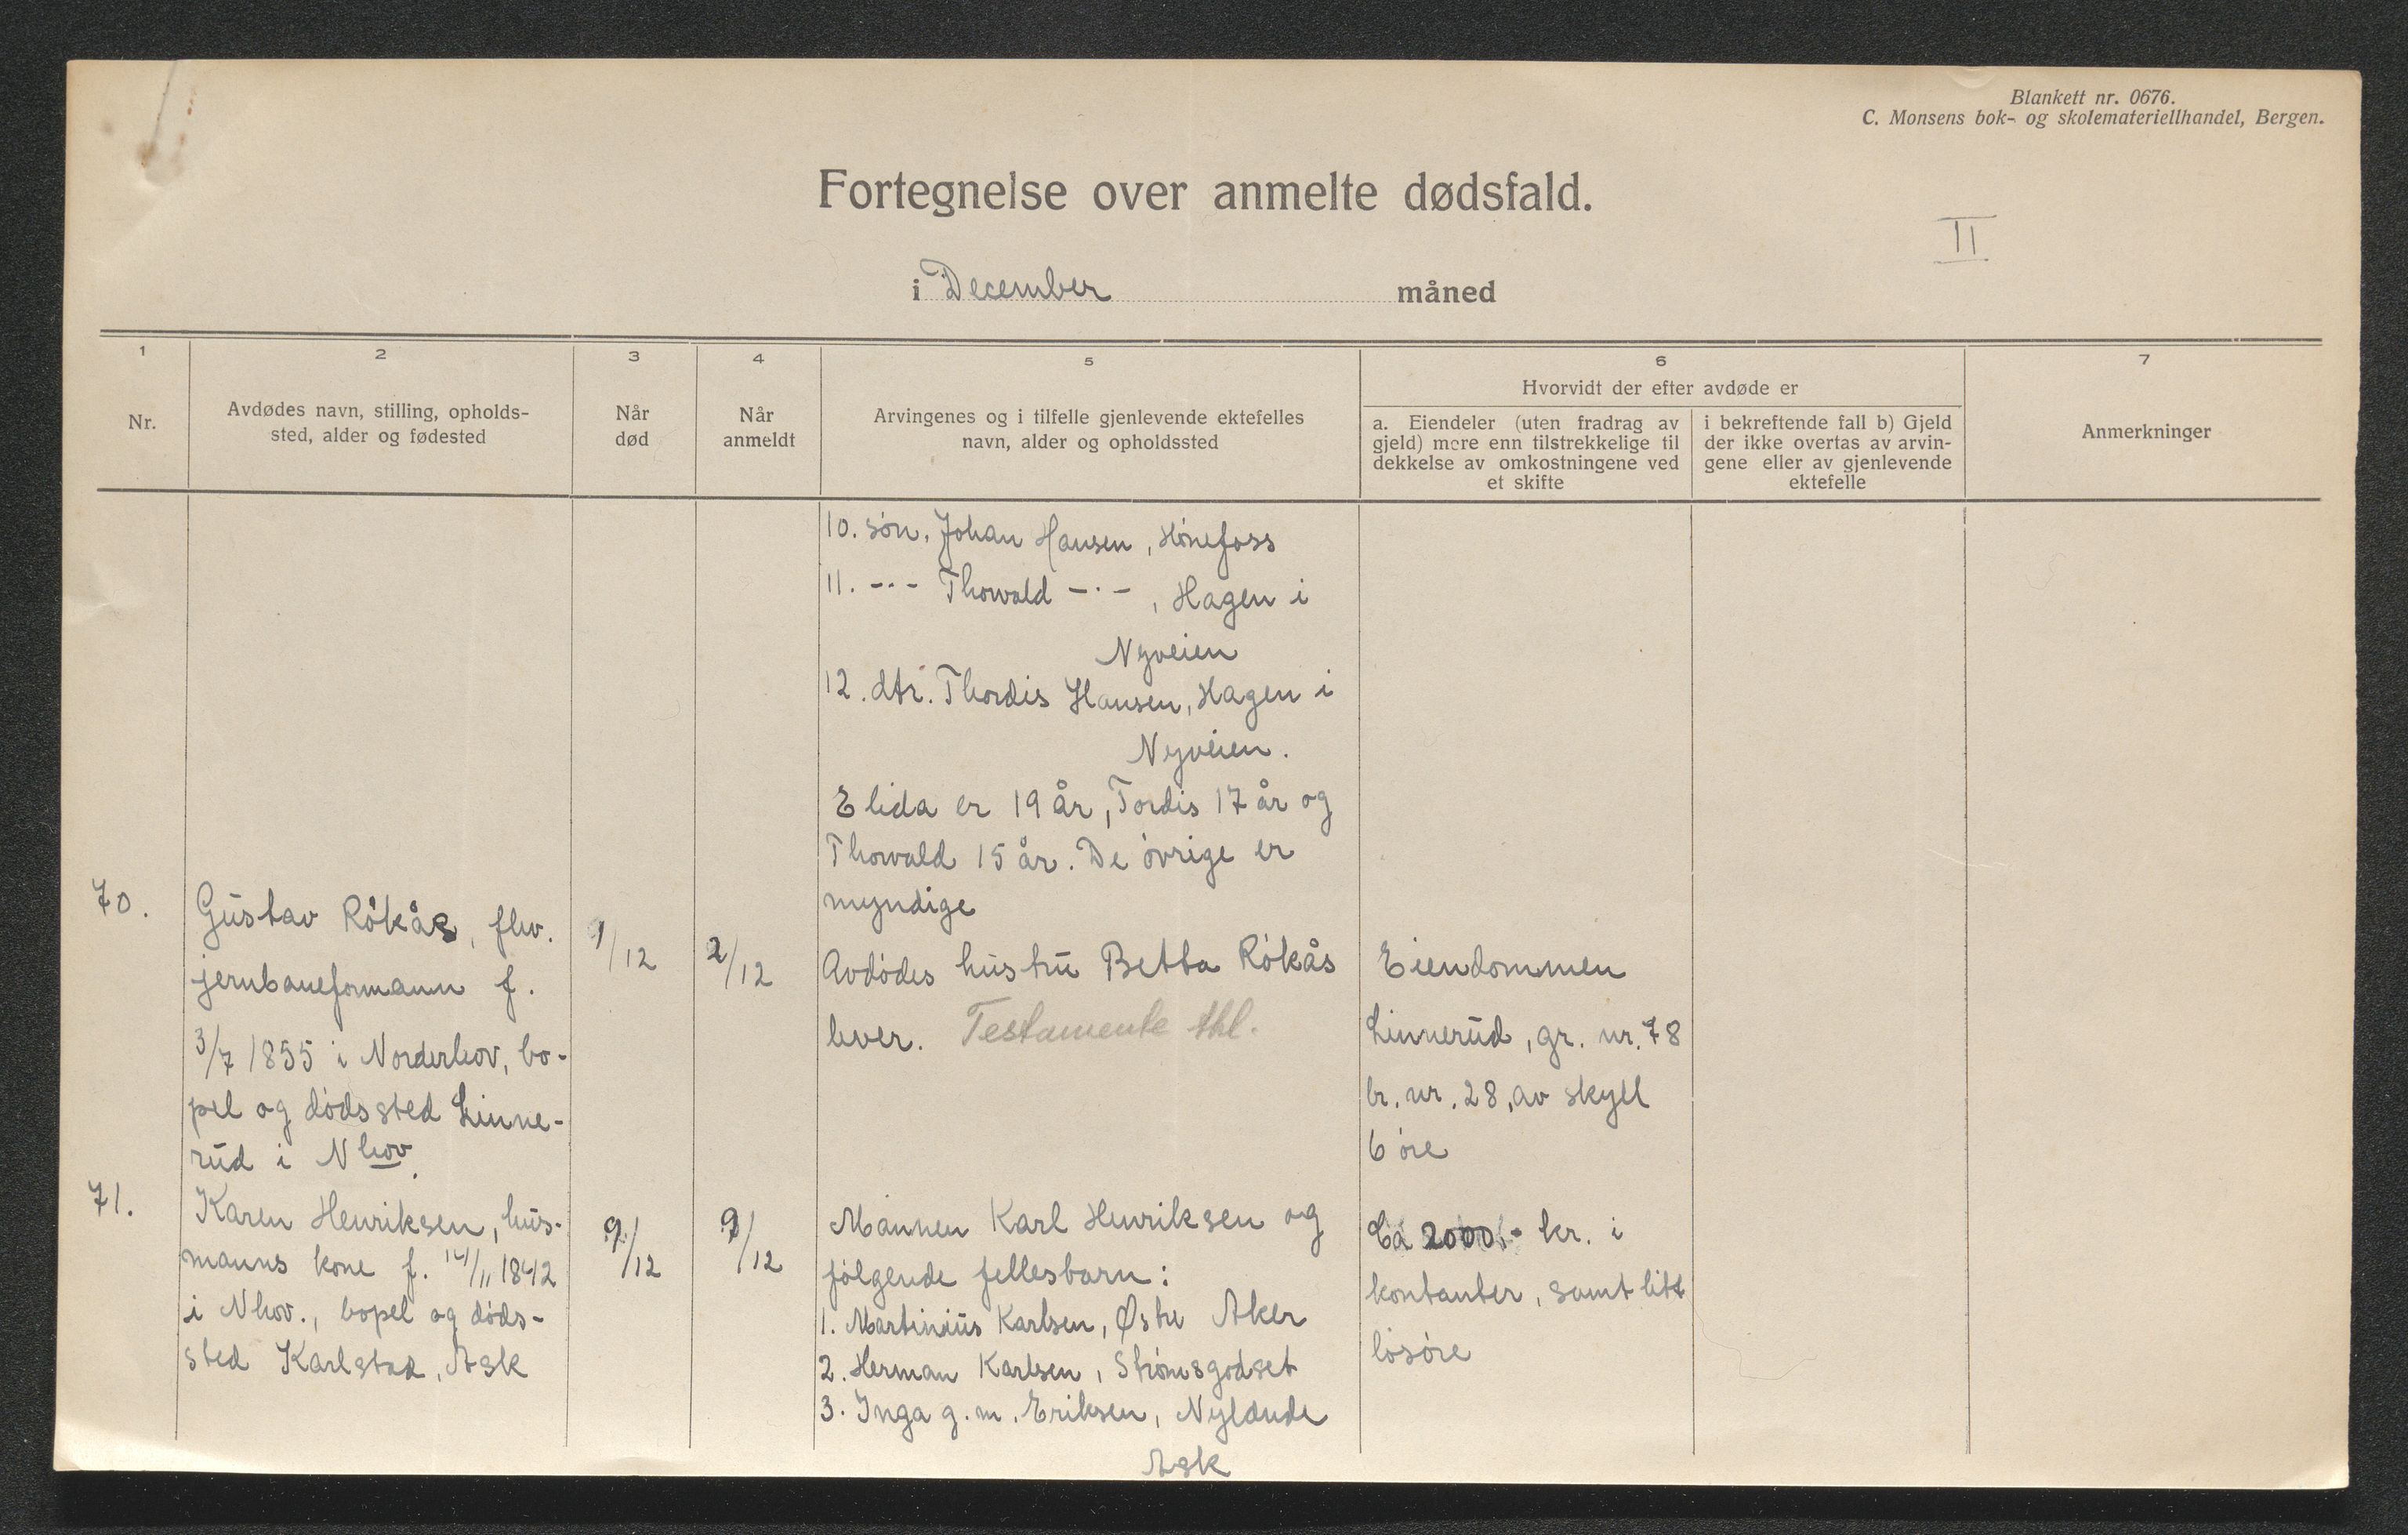 Blankett nr. 0676.
C. Monsens bok- og skolemateriellhandel, Bergen.
Fortegnelse over anmelte dødsfald.
II
i December måned
1
2
3
4
5
6
7
Nr.
Avdødes navn, stilling, opholds-
sted, alder og fødested
Når
død
Når
anmeldt
Arvingenes og i tilfelle gjenlevende ektefelles
navn, alder og opholdssted
Hvorvidt der efter avdøde er
a. Eiendeler (uten fradrag av
gjeld) mere enn tilstrekkelige til
dekkelse av omkostningene ved
et skifte
i bekreftende fall b) Gjeld
der ikke overtas av arvin-
gene eller av gjenlevende
ektefelle
Anmerkninger
10. søn. Johan Hansen, Hønefoss
11. -"- Thorvald -"-, Hagen i
Nyveien
12. dtr. Thordis Hansen, Hagen i
Nyveien.
Elida er 19 år, Tordis 17 år og
Thorvald 15 år. De øvrige er
myndige
70.
Gustav Røkås, fhv.
jernbaneformann f.
3/7 1855 i Norderhov, bo-
pel og dødssted Linne-
rud i Nhov.
1/12
2/12
Avdødes hustru Betta Røkås
lever. Testamente thl.
Eiendommen
Linnerud, gr. nr. 78
br. nr. 28, av skyll
6 øre
71.
Karen Henriksen, hus-
manns kone f. 14/11 1842
i Nhov., bopel og døds-
sted Karlstad, Ask
9/12
9/12
Mannen Karl Henriksen og
følgende fellesbarn:
1. Martinius Karlsen, Østre Aker
2. Herman Karlsen, Strømsgodset
3. Inga g. m. Eriksen, Nylænde
Ask
Ca 2000,- kr. i
kontanter, samt litt
løsøre